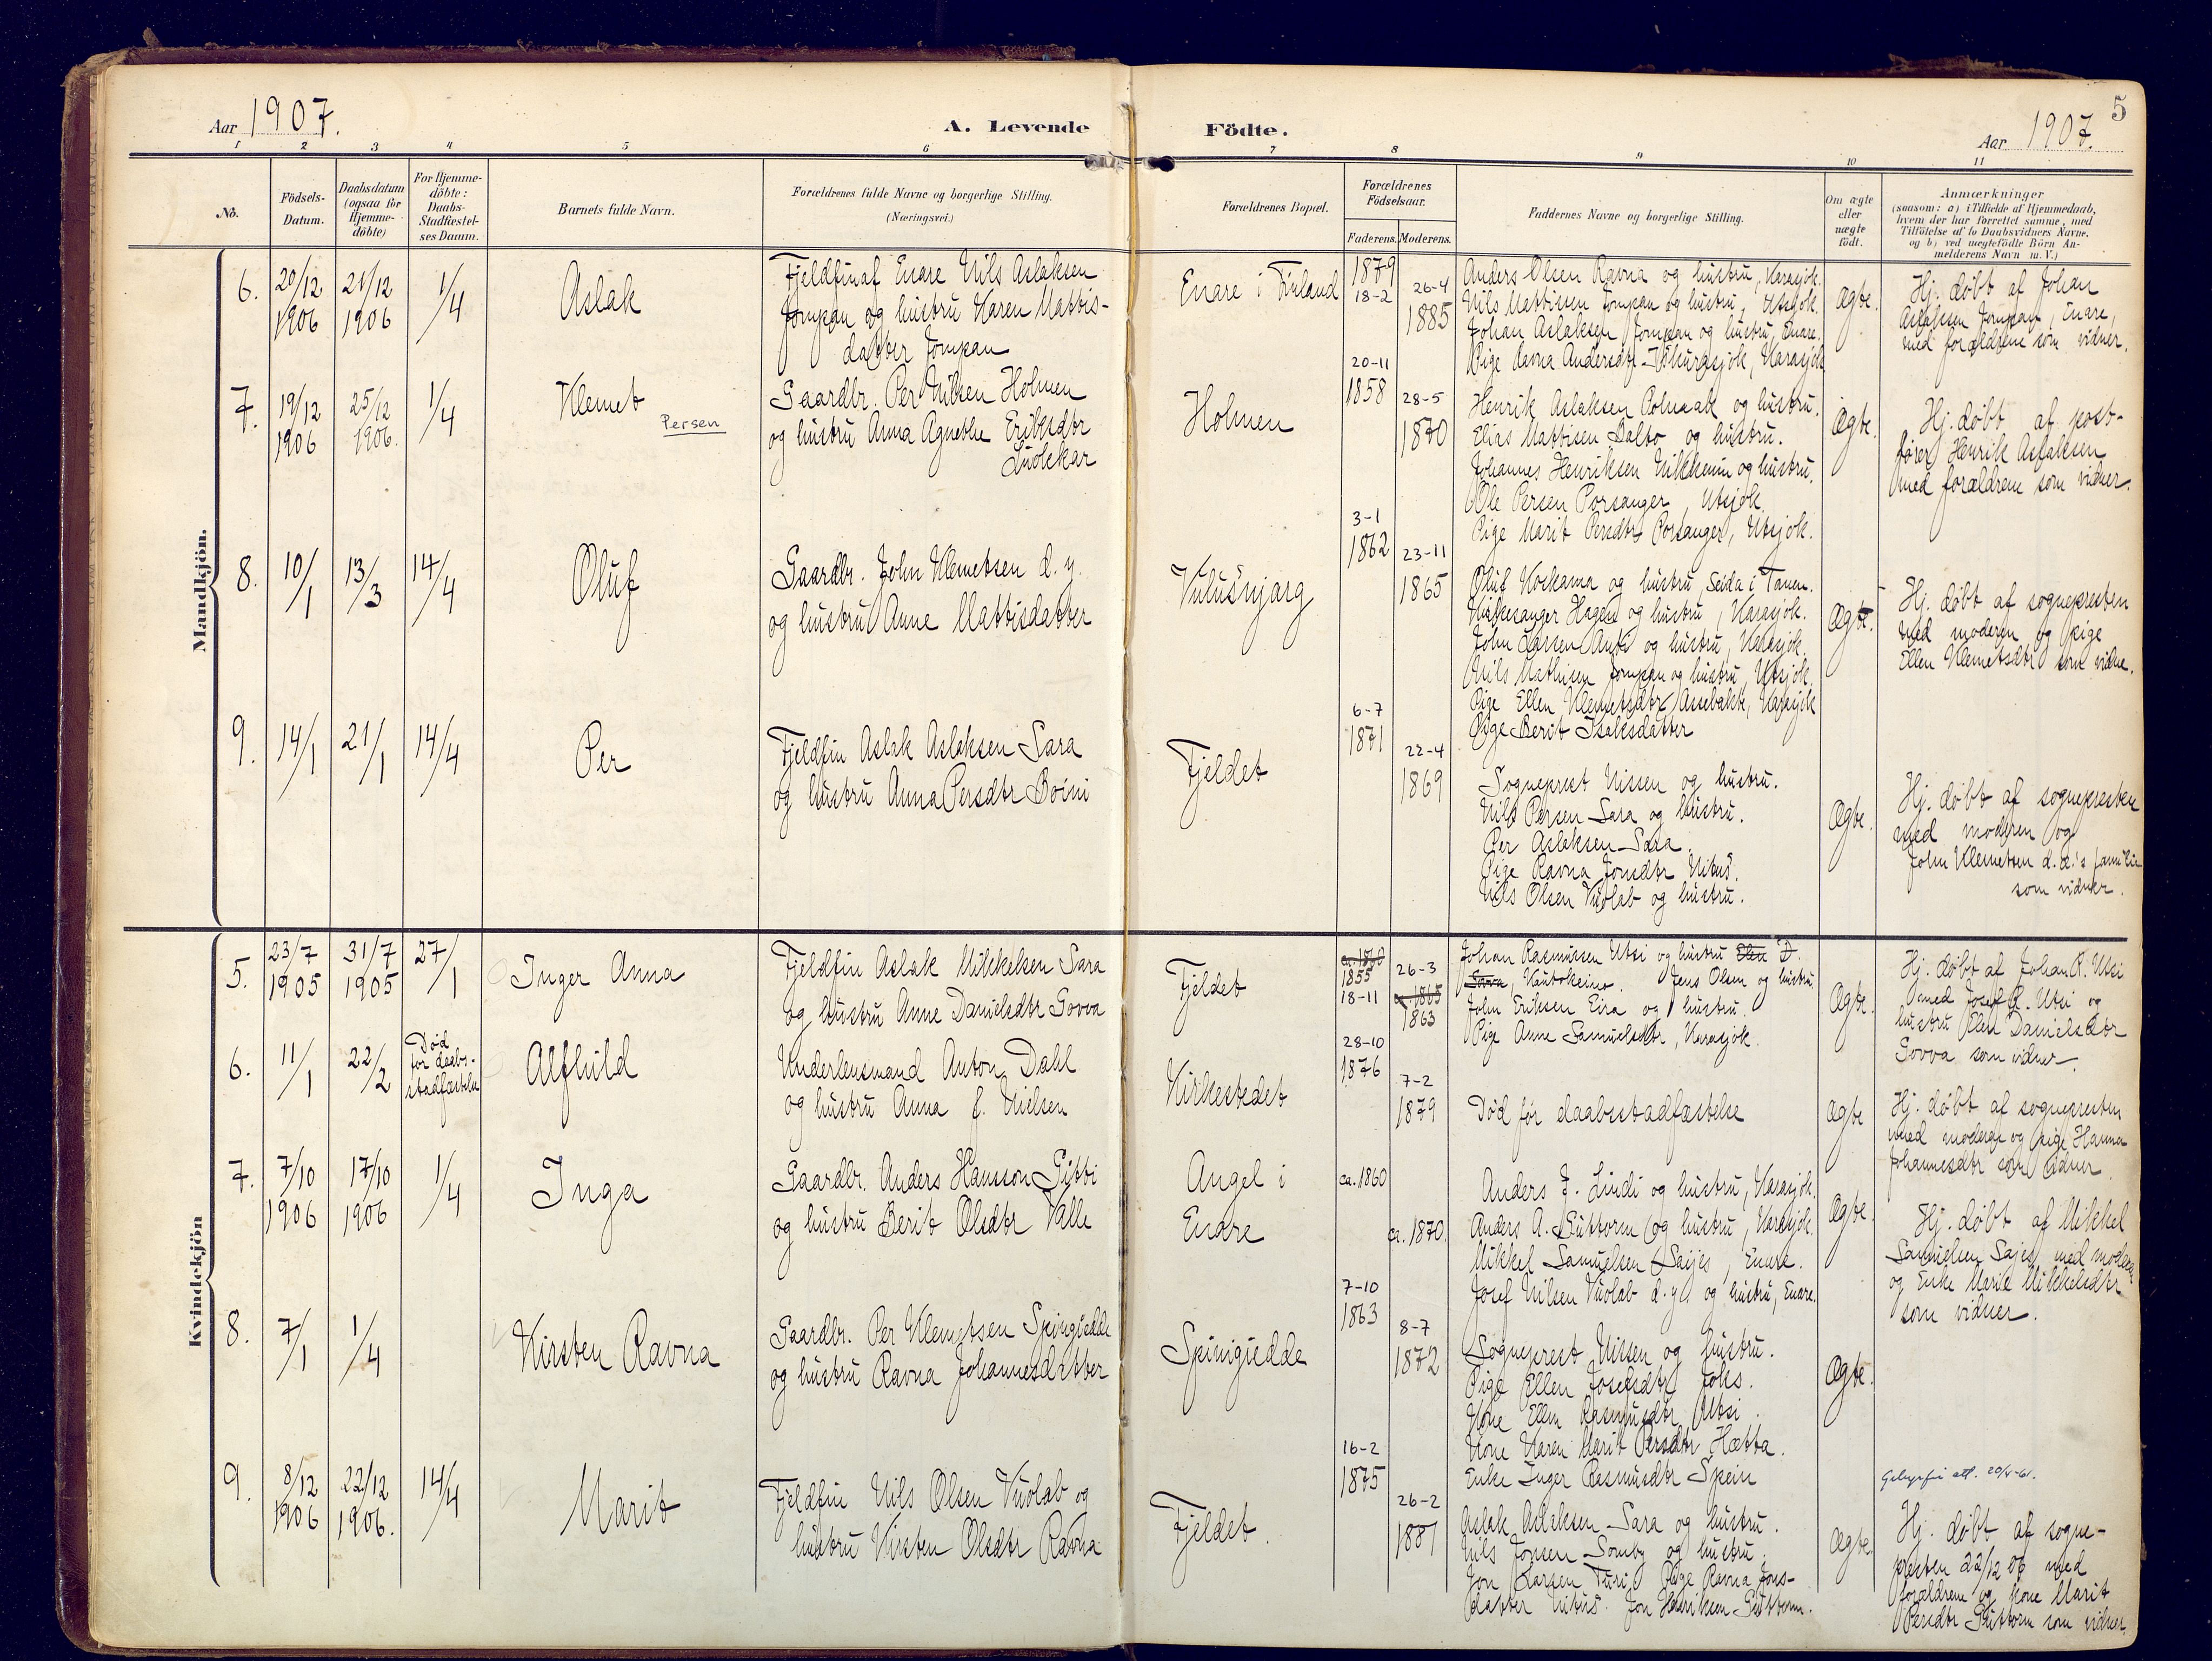 5
Aar 1907.
A. Levende
Födte.
Aar 1907.
1 2 3 4 5 6 7 8 9 10 11
No.
Födsels-
Datum.
Daabsdatum
(ogsaa for
Hjemme-
döbte)
For Hjemme-
döbte:
Daabs-
Stadfæstel-
ses Datum.
Barnets fulde Navn.
Forældrenes fulde Navne og borgerlige Stilling.
(Næringsvei.)
Forældrenes Bopæl.
Forældrenes
Födselsaar.
Faderens. Moderens.
Faddernes Navne og borgerlige Stilling.
Om ægte
eller
uægte
födt.
Anmærkninger
(saasom: a) i Tilfælde af Hjemmedaab,
hvem der har forrettet samme, med
Tilföielse af to Daabsvidners Navne,
og b) ved uægtefödte Börn An-
melderens Navn m. V.)
Mandkjön.
6.
20/12
1906
21/12
1906
1/4
Aslak
Fjeldfin af Enare Nils Aslaksen
Jompan og hustru Karen Mattis-
datter Jompan
Enare i Finland
1879
18-2
26-4
1885
Anders Olsen Ravna og hustru, Karasjok.
Nils Mattisen Jompan og hustru, Utsjok.
Johan Aslaksen Jompan og hustru, Enare.
Pige Ravna Andersdtr Karasjok
Ægte.
Hj. døbt af Johan
Aslaksen Jompan, Enare,
med forældrene som vidner.
7.
19/12
1906
25/12
1906.
1/4
Klemet
Persen
Gaardbr. Per Nilsen Holmen
og hustru Anna Agnethe Eriksdtr
Luokkar
Holmen
20-11
1858
28-5
1870
Henrik Aslaksen Polmak og hustru.
Elias Mattisen Balto og hustru.
Johannes Henriksen og hustru.
Ole Persen Porsanger, Utsjok.
Pige Marit Persdtr Porsanger, Utsjok.
Ægte.
Hj. døbt af post-
fører Henrik Aslaksen
med forældrene som vidner.
8.
10/1
13/3
14/4
Oluf
Gaardbr. John Klemetsen d. y.
og hustru Anne Mattisdatter
Vulušnjarg
3-1
1862
23-11
1865
Oluf Koskama og hustru, Seida i Tanen.
Kirkesanger Hagen og hustru, Karasjok.
John Larsen Anti og hustru, Karasjok.
Nils Mathisen Jompan og hustru, Utsjok.
Pige Ellen Klemetsdtr Assebakte, Karasjok
Pige Berit Isaksdatter
Ægte.
Hj. døbt af sognepresten
med moderen og pige
Ellen Klemetsdtr som vidne.
9.
14/1
21/1
14/4
Per
Fjeldfin Aslak Aslaksen Sara
og hustru Anna Persdtr Boini
Fjeldet
6-7
1871
22-4
1869
Sogneprest Nissen og hustru.
Nils Persen Sara og hustru.
Per Aslaksen Sara.
Pige Ravna Jonsdtr Nikus.
Nils Olsen Vuolab og hustru.
Ægte.
Hj. døbt af sognepresten
med moderen og
John Klemetsen d. æ.'s familie
som vidner.
Kvindekjön
5.
23/7
1905
31/7
1905
27/1
Inger Anna
Fjeldfin Aslak Mikkelsen Sara
og hustru Anne Danielsdtr Govva
Fjeldet
ca. 1860
1855
18-11
26-3
ca. 1865
1863
Johan Rasmussen Utsi og hustru Elen D.
Govva, Kautokeino. Jens Olsen og hustru.
John Eriksen Eira og hustru.
Pige Anne Samuelsdtr, Karasjok.
Ægte.
Hj. døbt af Johan R. Utsi
med Josef R. Utsi og
hustru Elen Danielsdtr
Govva som vidner.
6.
11/1
22/2
Død
før daabs-
stadfæstelse
Alfhild
Underlensmand Anton Dahl
og hustru Anna f. Nielsen
Kirkestedet
28-10
1876
7-2
1879
Død før daabsstadfæstelse
ægte
Hj. døbt af sognepresten
med moderen og pige Hanna
Johannesdtr som vidner.
7.
7/10
1906
17/10
1906
1/4
Inga
Gaardbr. Anders Hansson Kitti
og hustru Berit Olsdtr Valle
Angel i
Enare
ca. 1860
ca. 1870.
Anders J. Lindi og hustru, Karasjok.
Anders A. Guttorm og hustru, Karasjok.
Mikkel Samuelsen Saijes, Enare.
Josef Nilsen Vuolab d. y. og hustru, Enare.
Ægte.
Hj. døbt af Mikkel
Samuelsen Sajes med moderen
og Enke Marit Mikkelsdtr
som vidner.
8.
7/1
1/4
Kirsten Ravna
Gaardbr. Per Klemetsen Spinigiedde
og hustru Ravna Johannesdatter
Spinigiedde
7-10
1863
8-7
1872
Sogneprest Nissen og hustru.
Pige Ellen Josefsdtr Joks.
Kone Ellen Rasmusdtr Utsi.
Kone Karen Marit Persdtr Hætta.
Enke Inger Rasmusdtr Spein
Ægte.
9.
8/12
1906
22/12
1906.
14/4
Marit
Fjeldfin Nils Olsen Vuolab og
hustru Kirsten Olsdtr Ravna
Fjeldet.
16-2
1875
26-2
1881
Aslak Aslaksen Sara og hustru.
Nils Jonsen Somby og hustru.
Jon Larsen Turi. Pige Ravna Jons-
datter Nikus. Jon Henriksen Guttorm.
Ægte.
att. 20/4-61.
Hj. døbt af sogne-
presten 22/12 06 med
forældrene og kone Marit
Persdtr Guttorm som vidner.